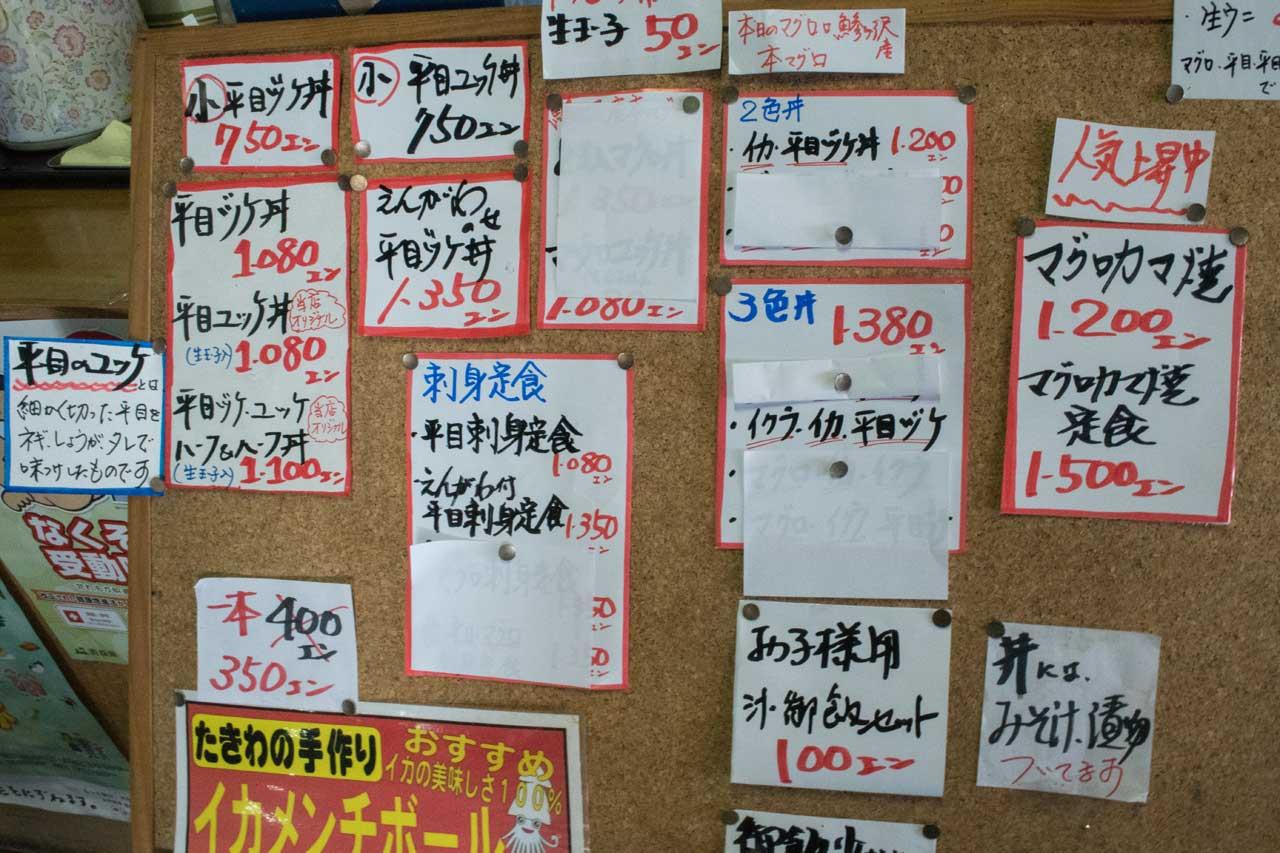 生玉子 50エン
本日のマグロは、鰺ヶ沢産
本マグロ
生ウニ
マグロ・平目・平目
で
小 平目ヅケ丼
750エン
小 平目ユッケ丼
750エン
平目ヅケ丼
1.080エン
平目ユッケ丼 当店オリジナル
(生玉子入) 1.080エン
平目ヅケ・ユッケ 当店オリジナル
ハーフ&ハーフ丼
(生玉子入) 1.100エン
えんがわのせ
平目ヅケ丼
1.350エン
1.080エン
2色丼
・イカ・平目ヅケ丼 1.200エン
3色丼 1.380エン
・イクラ・イカ・平目ヅケ
人気上昇中
マグロカマ焼
1.200エン
マグロカマ焼
定食
1.500エン
平目のユッケとは
細かく切った平目を
ネギ、しょうが、タレで
味つけしたものです
刺身定食
・平目刺身定食
1.080エン
・えんがわ付
平目刺身定食 1.350エン
一本 400エン
350エン
たきわの手作り
おすすめ
イカの美味しさ100%
イカメンチボール
お子様用
汁・御飯セット
100エン
丼には、
みそ汁、漬物
ついてます
なくそ
受動